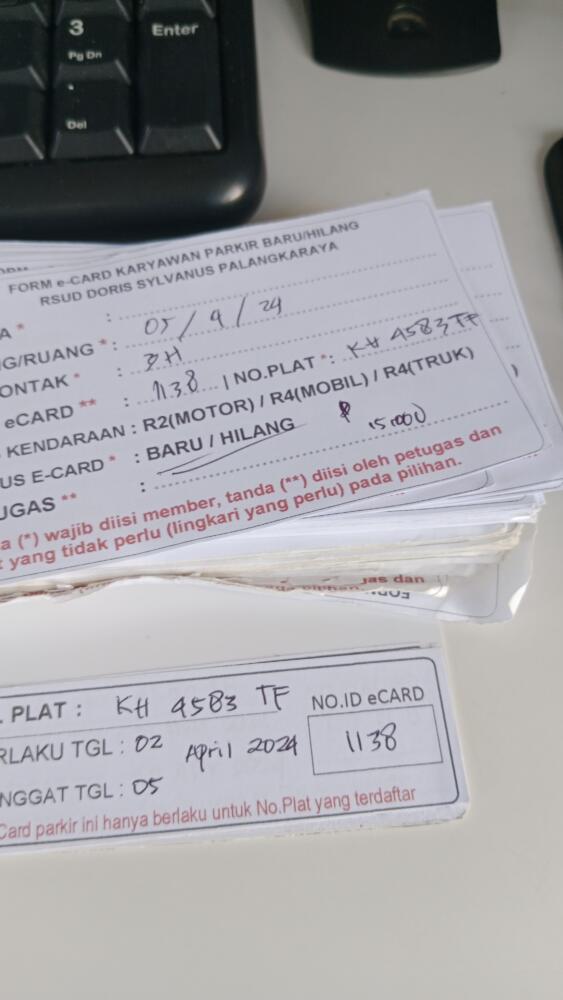 3
Pg Dn
Enter
.
Del
FORM e-CARD KARYAWAN PARKIR BARU/HILANG
RSUD DORIS SYLVANUS PALANGKARAYA
A * :
G/RUANG * : 05/4/24
ONTAK * : BH
eCARD ** : 1138 | NO.PLAT * : KH 4583 TF
KENDARAAN : R2(MOTOR) / R4(MOBIL) / R4(TRUK)
US E-CARD * : BARU / HILANG 15.000
UGAS ** :
a (*) wajib diisi member, tanda (**) diisi oleh petugas dan
t yang tidak perlu (lingkari yang perlu) pada pilihan.
jas dan
. PLAT : KH 4583 TF
NO.ID eCARD
RLAKU TGL : 02 April 2024
1138
NGGAT TGL : 05
Card parkir ini hanya berlaku untuk No.Plat yang terdaftar